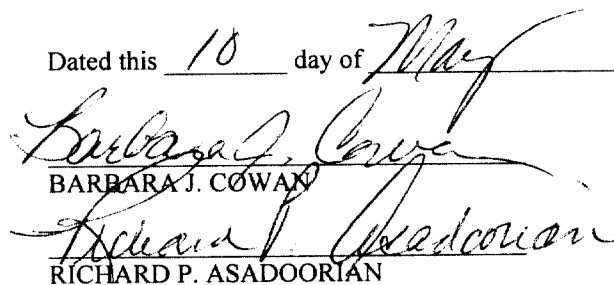 Dated this 10 day of May
Barbara J. Cowan
BARBARA J. COWAN
Richard P. Asadoorian
RICHARD P. ASADOORIAN